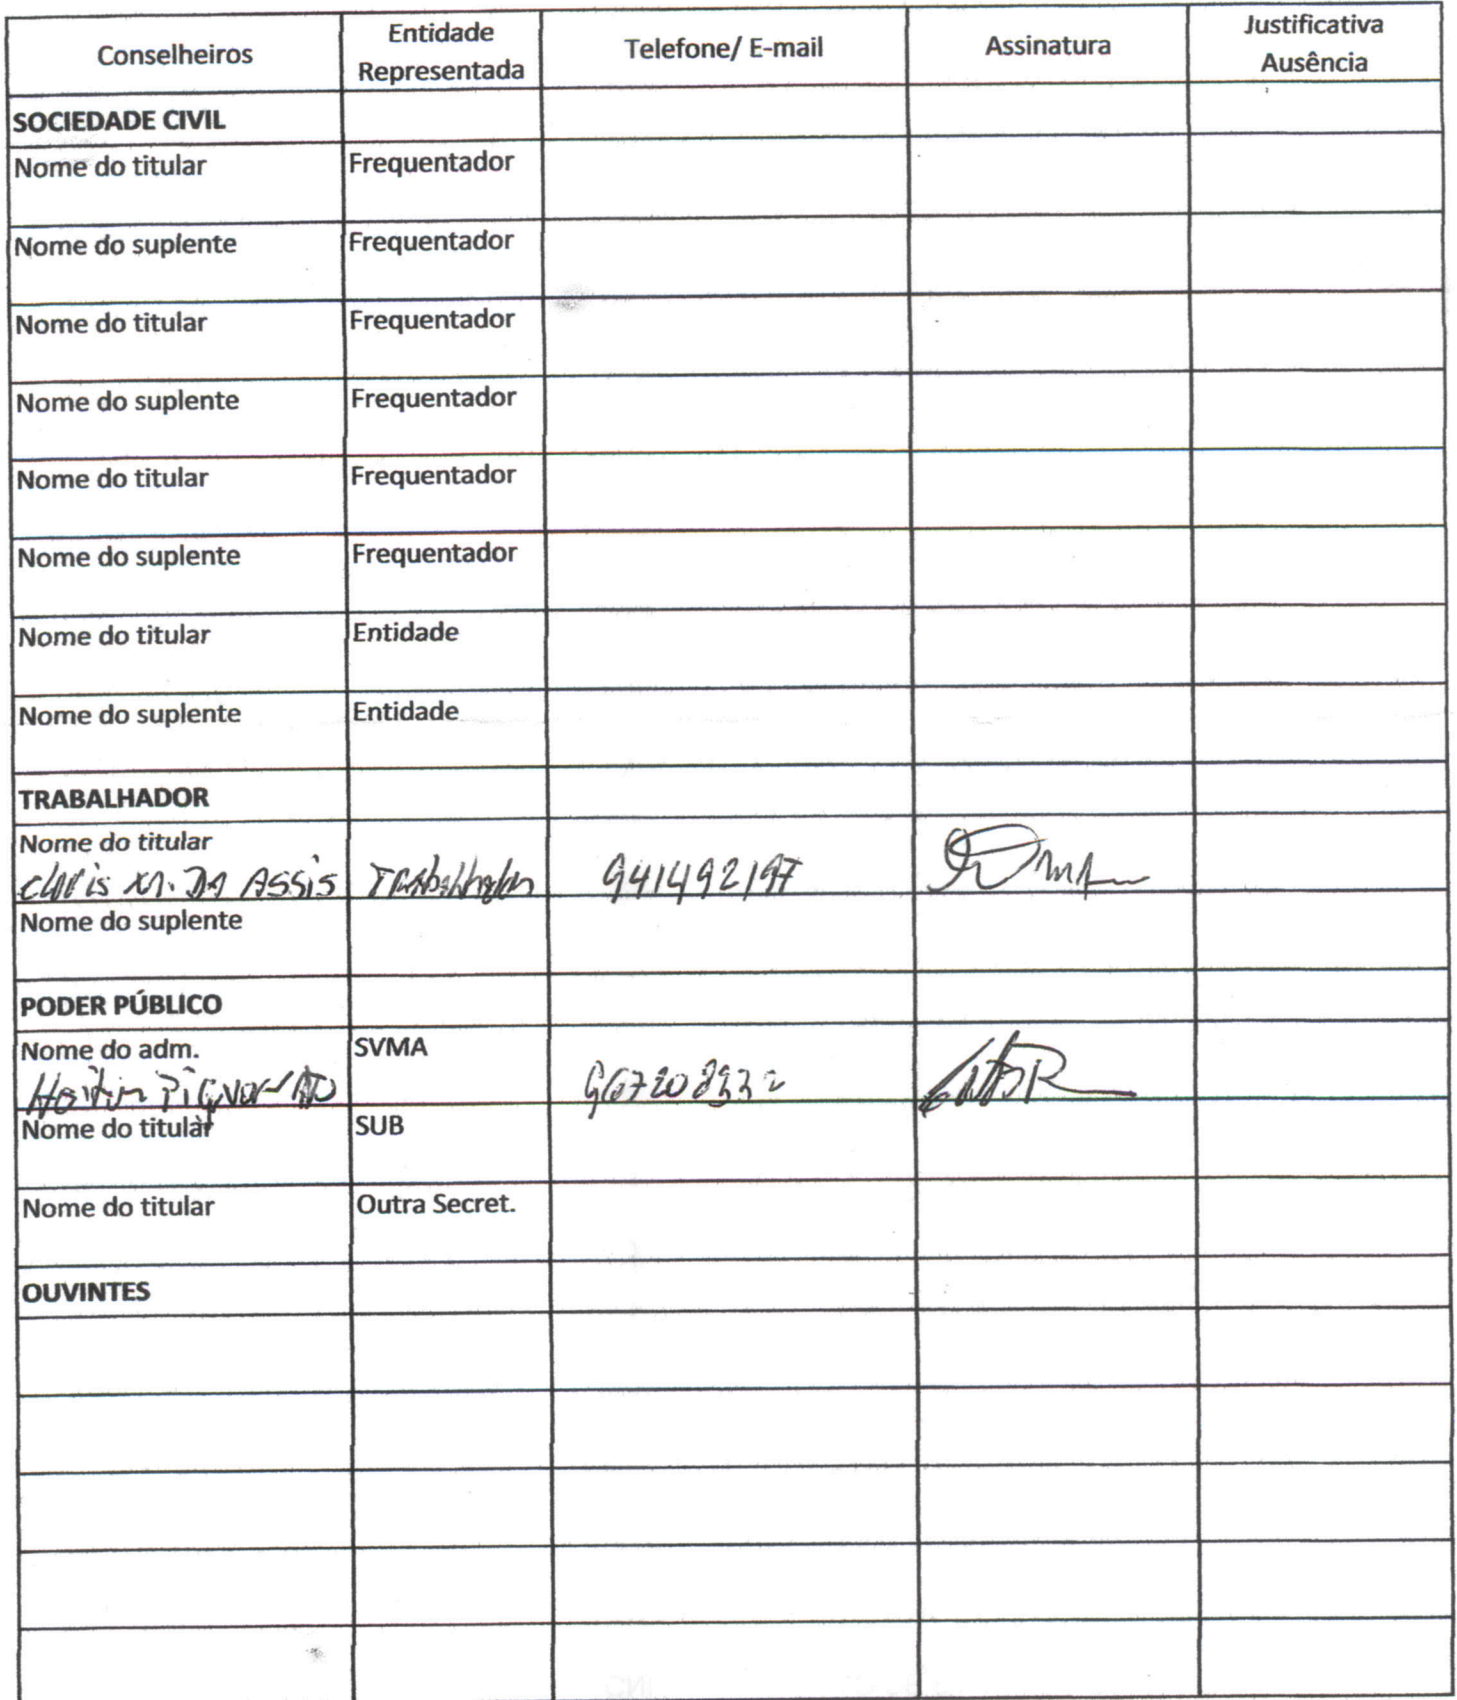 Conselheiros
Entidade Representada
Telefone/ E-mail
Assinatura
Justificativa Ausência
SOCIEDADE CIVIL
Nome do titular Frequentador
Nome do suplente Frequentador
Nome do titular Frequentador
Nome do suplente Frequentador
Nome do titular Frequentador
Nome do suplente Frequentador
Nome do titular Entidade
Nome do suplente Entidade
TRABALHADOR
Nome do titular
DA ASSIS 941492197
Nome do suplente
PODER PÚBLICO
Nome do adm. SVMA
Nome do titular SUB
Nome do titular Outra Secret.
OUVINTES